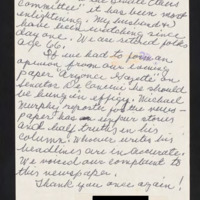 Committee" it has been most
enlightening. My husband & I
have been watching since
day one. We are retired folks
age 66.
If we had to form an
opinion from our evening
paper "Anyone Gazette" on
Senator Ervin we should
be being an effigy. Michael
Murphy, reporter for the news-
paper has unfair stories
and half truths in his
column. Whoever writes his
headlines are in accurate.
We voiced our complaint to
this newspaper.
Thank you once again!